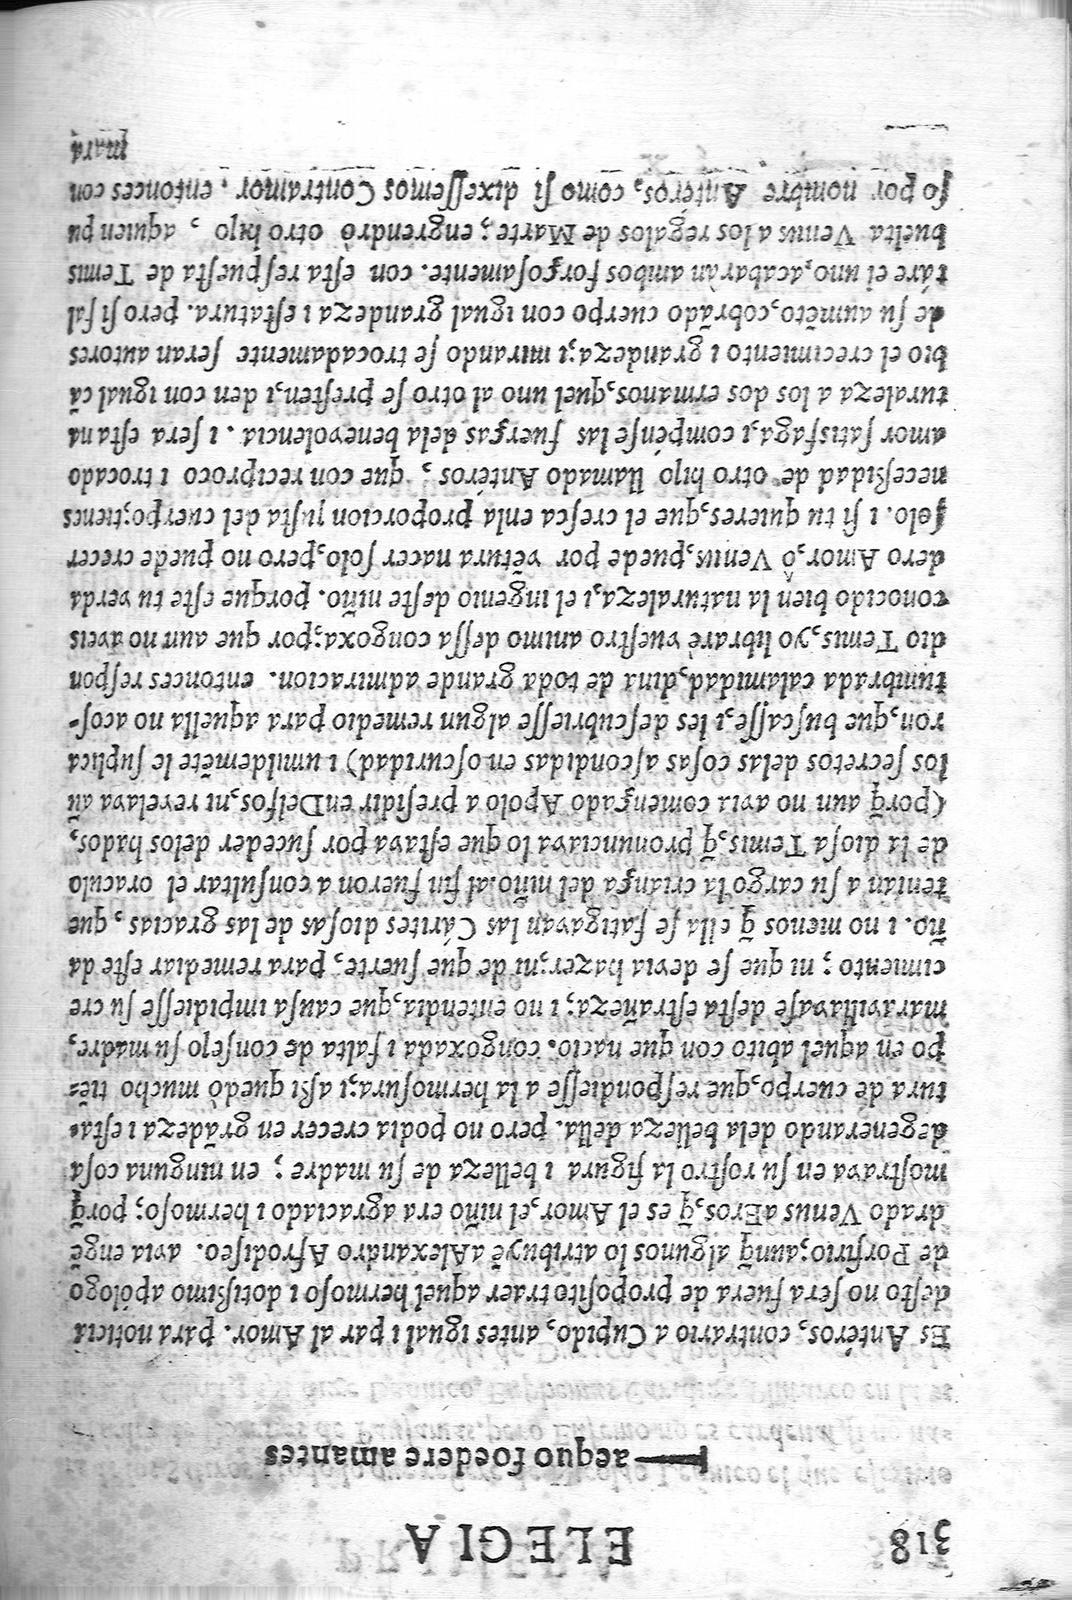 318 ELEGIA
— aequo foedere amantes
Es Antéros, contrario a Cupido, antes igual i par al Amor. para noticia
desto no sera fuera de proposito traer aquel hermoso i dotißimo apólogo
de Porfirio; aunq̃ algunos lo atribuyẽ a Alexandro Afrodiseo. avia engẽ
drado Venus a Eros, q̃ es el Amor, el niño era agraciado i hermoso; porq̃
mostrava en su rostro la figura i belleza de su madre; en ninguna cosa
degenerando dela belleza della. pero no podia crecer en grãdeza i esta-
tura de cuerpo, que respondiesse a la hermosura; i aßi quedò mucho tiẽ-
po en aquel abito con que nacio. congoxada i falta de consejo su madre,
maravillavase desta estrañeza; i no entendia, que causa impidiesse su cre
cimiento; ni que se devia hazer; ni de que suerte, para remediar este da
ño. i no menos q̃ ella se fatigavan las Cárites diosas de las gracias, que
tenian a su cargo la criança del niño. al fin fueron a consultar el oraculo
de la diosa Temis, q̃ pronunciava lo que estava por suceder delos hados,
(porq̃ aun no avia començado Apolo a presidir en Delfos, ni revelava aũ
los secretos delas cosas ascondidas en oscuridad) i umildemẽte le suplica
ron, que buscasse, i les descubriesse algun remedio para aquella no acos-
tumbrada calamidad, dina de toda grande admiracion. entonces respon
dio Temis, yo libraré vuestro animo dessa congoxa; por que aun no aveis
conocido bien la naturaleza, i el ingenio deste niño. porque este tu verda
dero Amor, ô Venus, puede por vẽtura nacer solo, pero no puede crecer
solo. i si tu quieres, que el cresca enla proporcion justa del cuerpo; tienes
neceßidad de otro hijo llamado Antéros; que con reciproco i trocado
amor satisfaga, i compénse las fuerças dela benevolencia. i sera esta na
turaleza a los dos ermanos, quel uno al otro se presten, i den con igual cã
bio el crecimiento i grandeza; i mirando se trocadamente seran autores
de su aumẽto, cobrãdo cuerpo con igual grandeza i estatura. pero si fal
táre el uno, acabaràn ambos forçosamente. con esta respuesta de Temis
buelta Venus a los regalos de Marte; engrendrò otro hijo, aquien pu
so por nombre Antéros, como si dixessemos Contramor. entonces con
mara